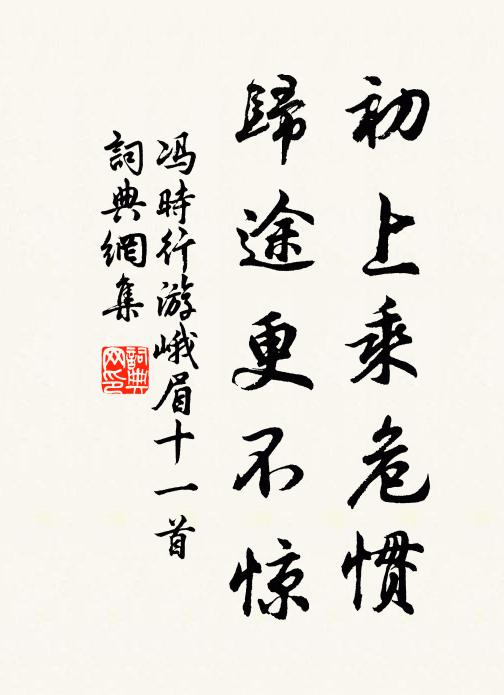 初上乘危慣
歸途更不惊
冯時行游峨眉十一首
詞典網集
詞典网印